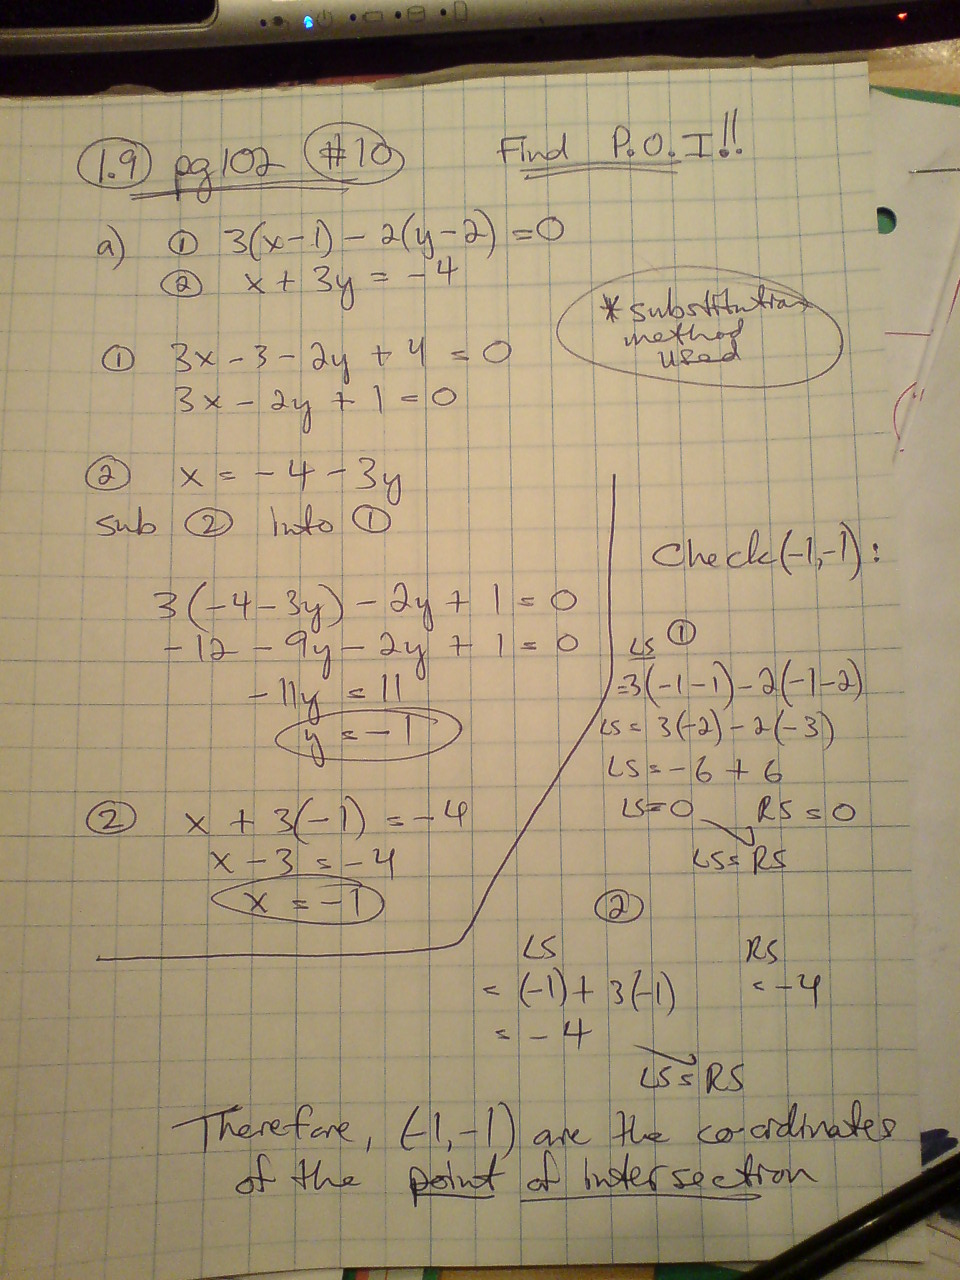 1.9 pg 102 #10 Find P.O.I!!
a) ① 3(x-1) - 2(y-2) = 0
② x + 3y = -4
* substitution
method
used
① 3x - 3 - 2y + 4 = 0
3x - 2y + 1 = 0
② x = -4 - 3y
sub ② into ①
3(-4 - 3y) - 2y + 1 = 0
-12 - 9y - 2y + 1 = 0
-11y = 11
y = -1
② x + 3(-1) = -4
x - 3 = -4
x = -1
Check (-1,-1):
①
LS
=3(-1-1) - 2(-1-2)
LS = 3(-2) - 2(-3)
LS = -6 + 6
LS = 0 RS = 0
LS = RS
②
LS RS
= (-1) + 3(-1) = -4
= -4
LS = RS
Therefore, (-1,-1) are the co-ordinates
of the point of intersection